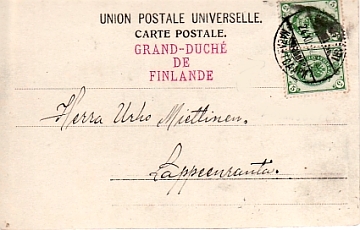 UNION POSTALE UNIVERSELLE.
CARTE POSTALE.
GRAND-DUCHÉ
DE
FINLANDE
Herra Urho Miettinen.
Lappeenranta.